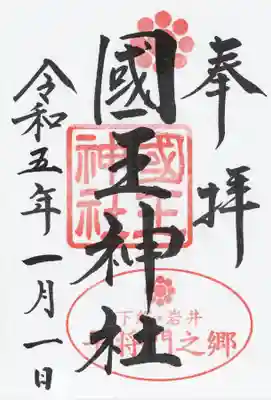 奉拝
國王神社
令和五年一月一日
國王神社
下総 岩井
将門之郷